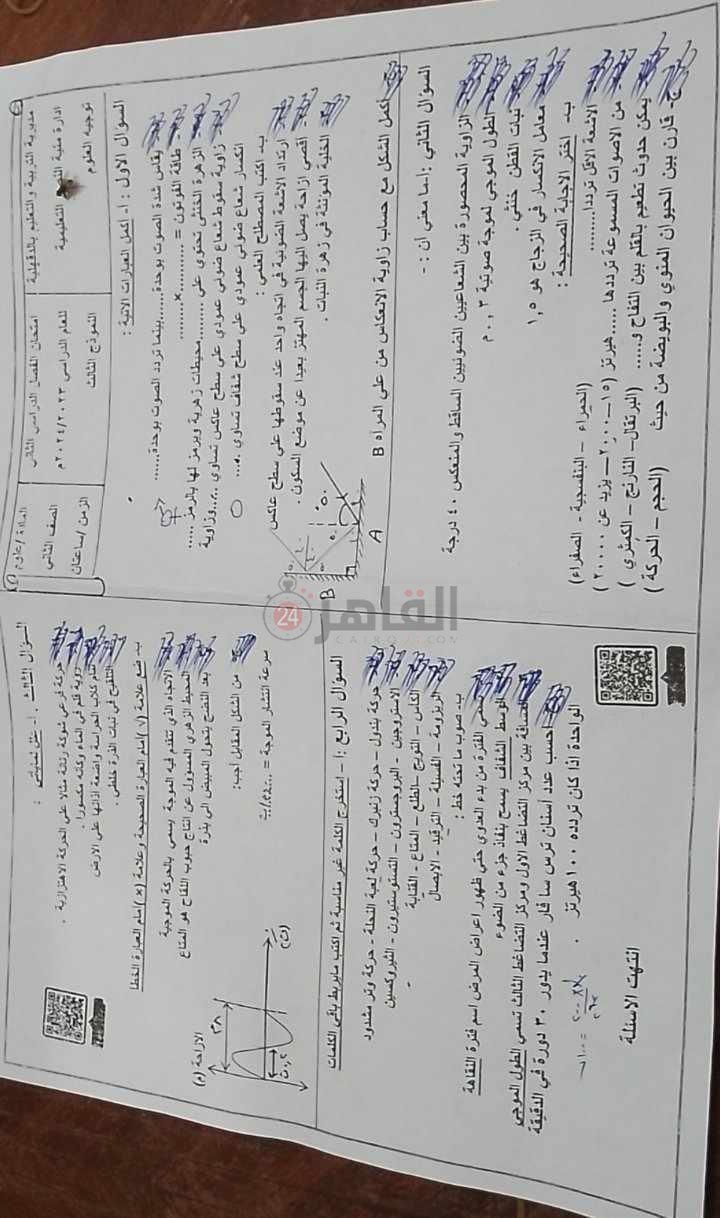 مديرية التربية والتعليم بالدقهلية
ادارة منية النصر التعليمية
توجيه العلوم
امتحان الفصل الدراسي الثاني
للعام الدراسي ٢٠٢٤/٢٠٢٣م
النموذج الثالث
المادة / علوم
الصف الثاني
الزمن / ساعتان
السؤال الاول : أ- أكمل العبارات الاتية :
تقاس شدة الصوت بوحدة..........بينما تردد الصوت بوحدة..........
- طاقة الفوتون = ..........×..........
الزهرة الخنثى تحتوي على ..........محيطات زهرية ويرمز لها بالرمز ......
زاوية سقوط شعاع ضوئي عمودي على سطح عاكس تساوي ......وزاوية
انكسار شعاع ضوئي عمودي على سطح شفاف تساوي ......
ب- اكتب المصطلح العلمي :
ارتداد الاشعة الضوئية في اتجاه واحد عند سقوطها على سطح عاكس
أقصى إزاحة يصل اليها الجسم المهتز بعيدا عن موضع السكون .
الخلية المؤنثة في زهرة النبات .
أكمل الشكل مع حساب زاوية الانعكاس من على المراه B
A
B
السؤال الثاني : أ-ما معنى أن : -
الزاوية المحصورة بين الشعاعين الضوئيين الساقط والمنعكس ٤٠ درجة
الطول الموجي لموجة صوتية ٠,٣ م
نبات القطن خنثى .
معامل الانكسار في الزجاج هو ١,٥
ب- اختر الاجابة الصحيحة :
الاشعة الاقل ترددا.......... (الحمراء – البنفسجية – الصفراء)
من الاصوات المسموعة ترددها ......هيرتز (١٥–٢٠٠٠–يزيد عن ٢٠٠٠٠)
يمكن حدوث تطعيم بالقلم بين التفاح و...... (البرتقال–النارنج–الكمثرى )
ج- قارن بين الحيوان المنوي والبويضة من حيث (الحجم – الحركة )
السؤال الثالث : أ- علل لمايأتي :
حركة فرعي شوكة رنانة مثالا على الحركة الاهتزازية .
رؤية قلم في الماء وكأنه مكسورا .
تضع كلاب الحراسة واضعة أذانها على الارض
التلقيح في نبات الذرة خلطي .
ب- ضع علامة (√) أمام العبارة الصحيحة وعلامة (×) امام العبارة الخطا
الاتجاه الذي تتقدم فيه الموجة يسمى بالحركة الموجية
المحيط الزهري المسؤول عن انتاج حبوب اللقاح هو المتاع
بعد النضج يتحول المبيض الى بذرة
من الشكل المقابل أجب:
سرعة انتشار الموجة =
الازاحة (م)
(ث)
السؤال الرابع : أ - استخرج الكلمة غير مناسبة ثم اكتب مايربط باقي الكلمات
حركة بندول – حركة زنبرك – حركة لعبة النحلة – حركة وتر مشدود
الاستروجين – البروجسترون – التستوستيرون – الثيروكسين
الكاس – التويج – الطلع – المتاع – القنابة
الريزومة – الفسيلة – الترقيد – الابصال
ب- صوب ما تحته خط :
تسمي الفترة من بدء العدوى حتى ظهور اعراض المرض اسم فترة النقاهة
الوسط الشفاف يسمح بنفاذ جزء من الضوء
المسافة بين مركز التضاغط الاول ومركز التضاغط الثالث تسمى الطول الموجي
احسب عدد أسنان ترس سافار عندما يدور ٣٠ دورة في الدقيقة
الواحدة اذا كان تردده ١٠٠ هيرتز .
انتهت الاسئلة
القاهرة
24
CAIRO24.COM